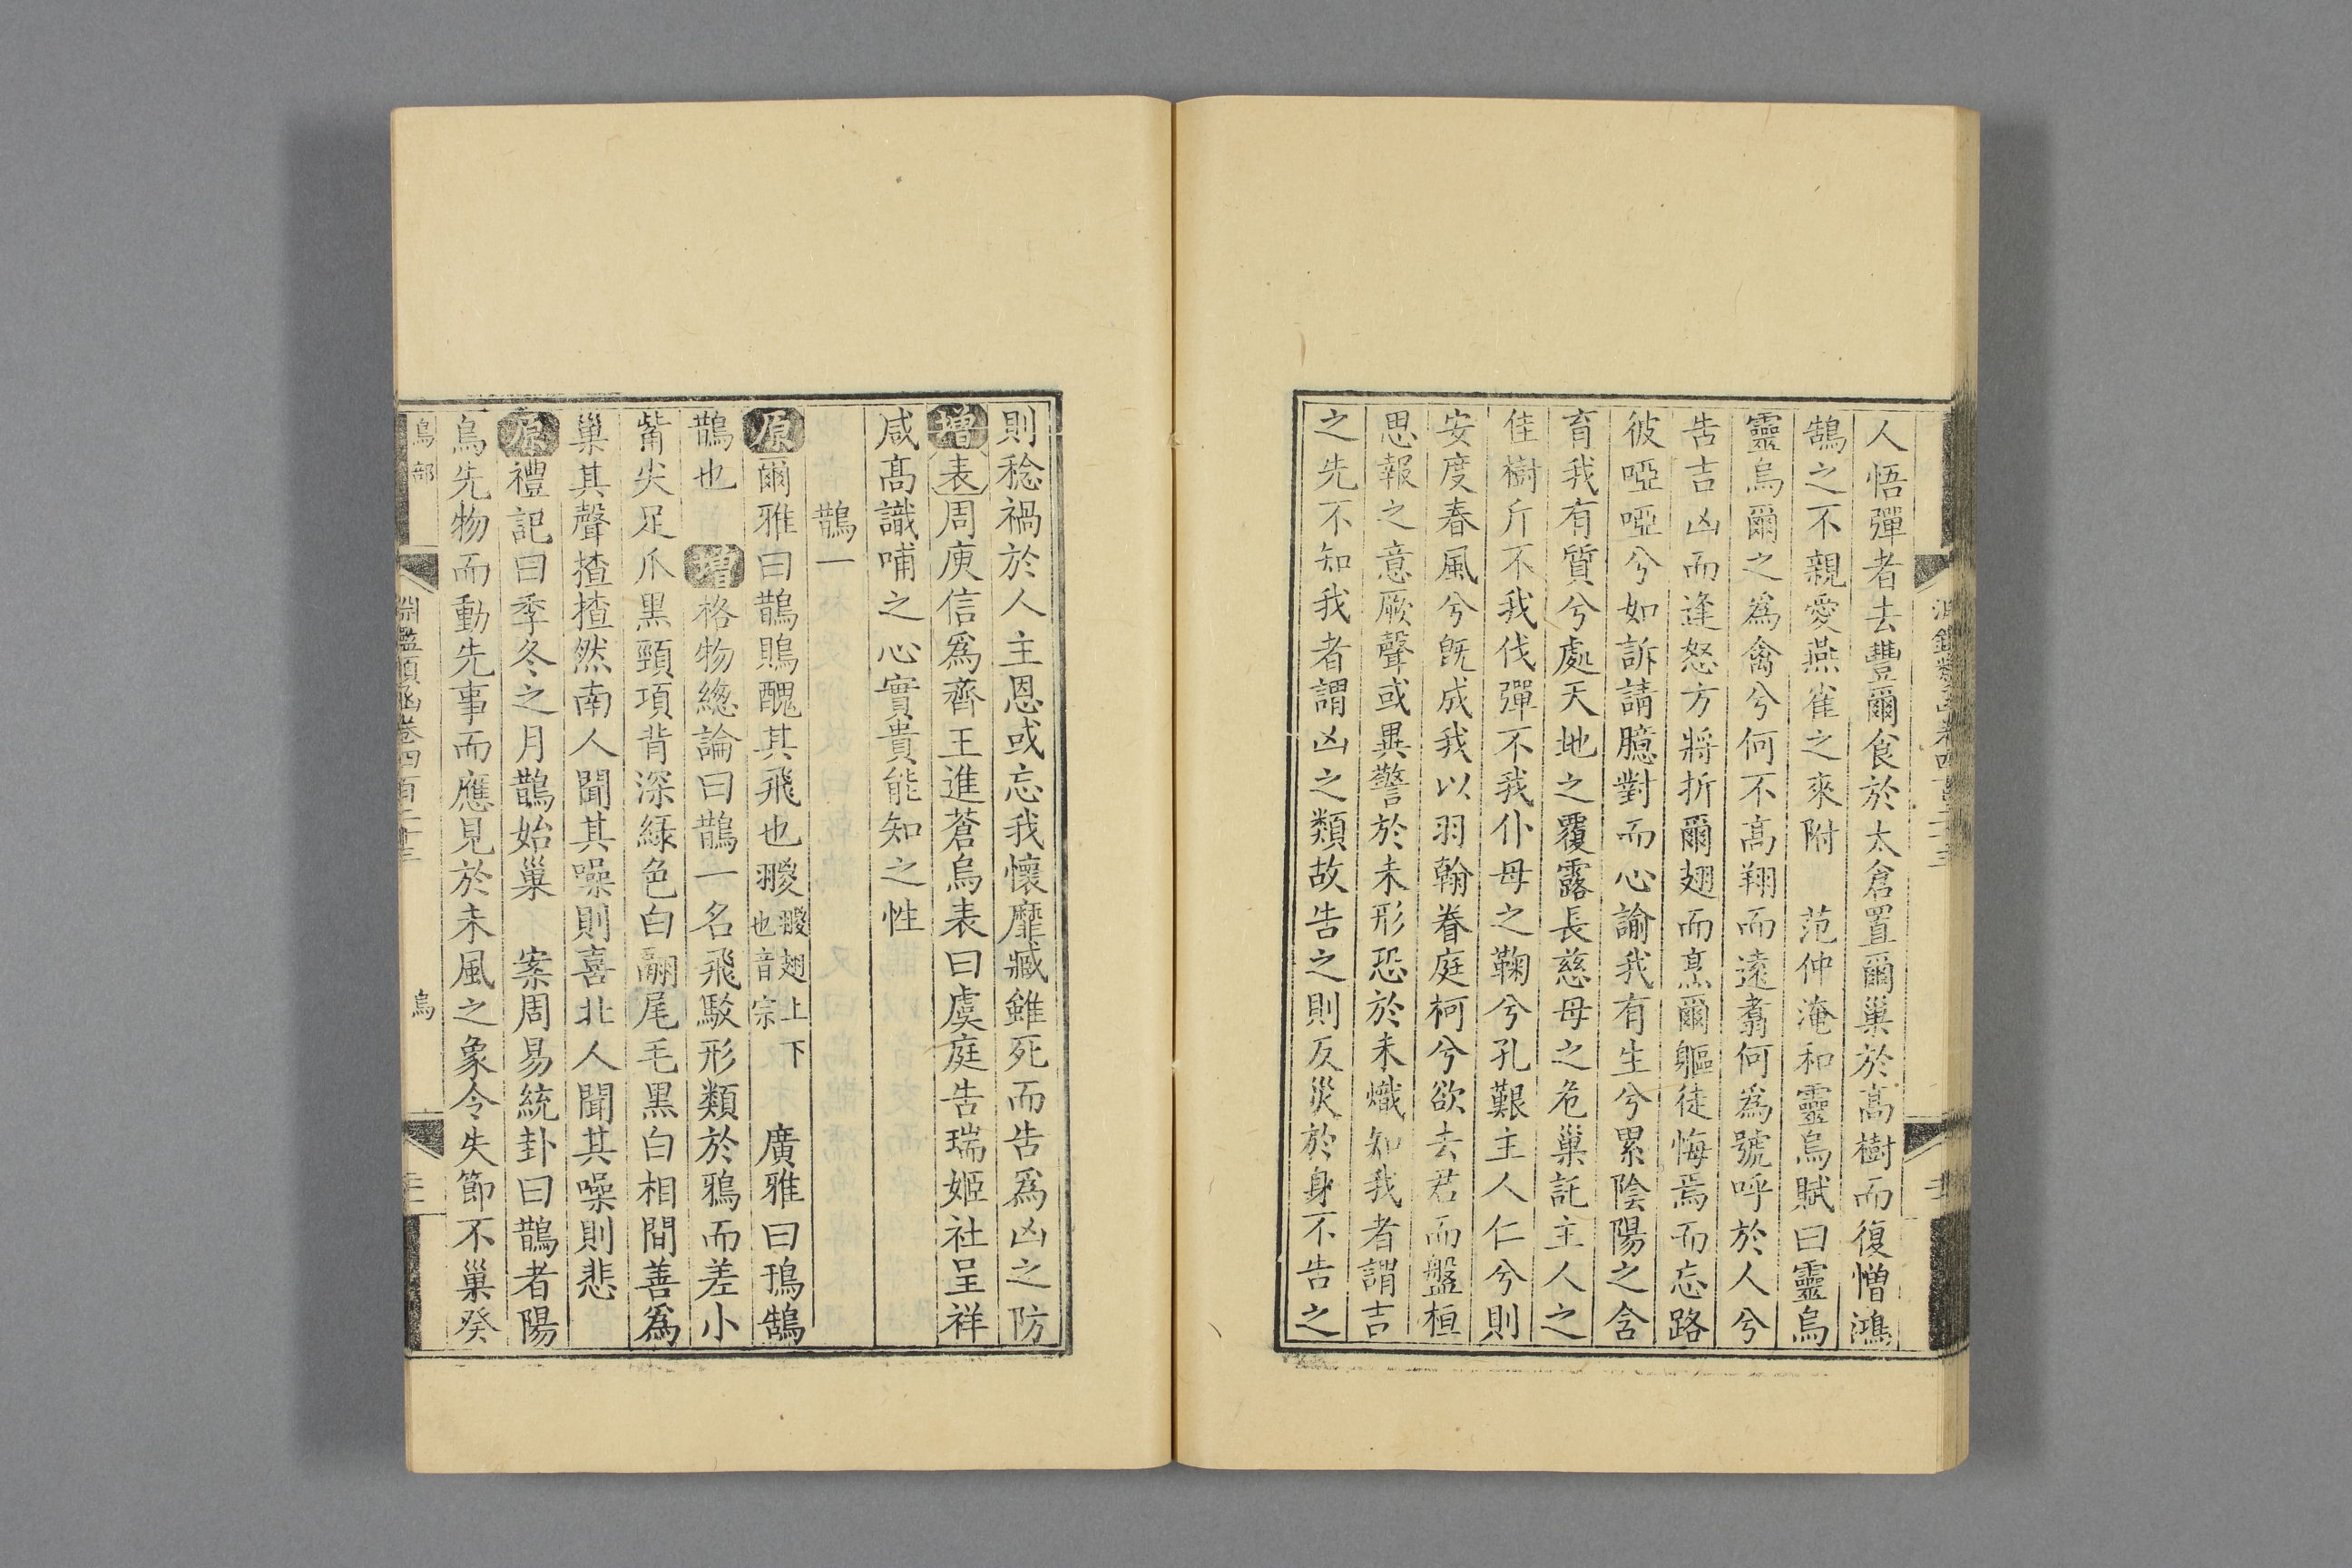 人悟彈者去豐爾食於太倉置爾巢於高樹而復憎鴻
鵠之不親愛燕雀之來附　范仲淹和靈烏賦曰靈烏
靈烏爾之為禽兮何不高翔而遠翥何為號呼於人兮
告吉凶而逢怒方將折爾翅而烹爾軀徒悔焉而忘路
彼啞啞兮如訴請臆對而心諭我有生兮累陰陽之含
育我有質兮處天地之覆露長慈母之危巢託主人之
佳樹斤不我伐彈不我仆母之鞠兮孔艱主人仁兮則
安度春風兮旣成我以羽翰眷庭柯兮欲去君而盤桓
思報之意厥聲或異警於未形恐於未熾知我者謂吉
之先不知我者謂凶之類故告之則反災於身不告之
則稔禍於人主恩或忘我懷靡臧雖死而告爲凶之防
增表周庾信爲齊王進蒼烏表曰虞庭告瑞姬社呈祥
咸高識哺之心實貴能知之性
鵲一
原爾雅曰鵲鵙醜其飛也翪翪翅上下也音宗　廣雅曰鳱鵠
鵲也　增格物緫論曰鵲一名飛駁形類於鴉而差小
觜尖足爪黑頸項背深綠色白翮尾毛黑白相間善爲
巢其聲揸揸然南人聞其噪則喜北人聞其噪則悲
原禮記曰季冬之月鵲始巢　案周易統卦曰鵲者陽
鳥先物而動先事而應見於未風之象令失節不巢癸
鳥部
淵鑑類函卷四百二十三
烏